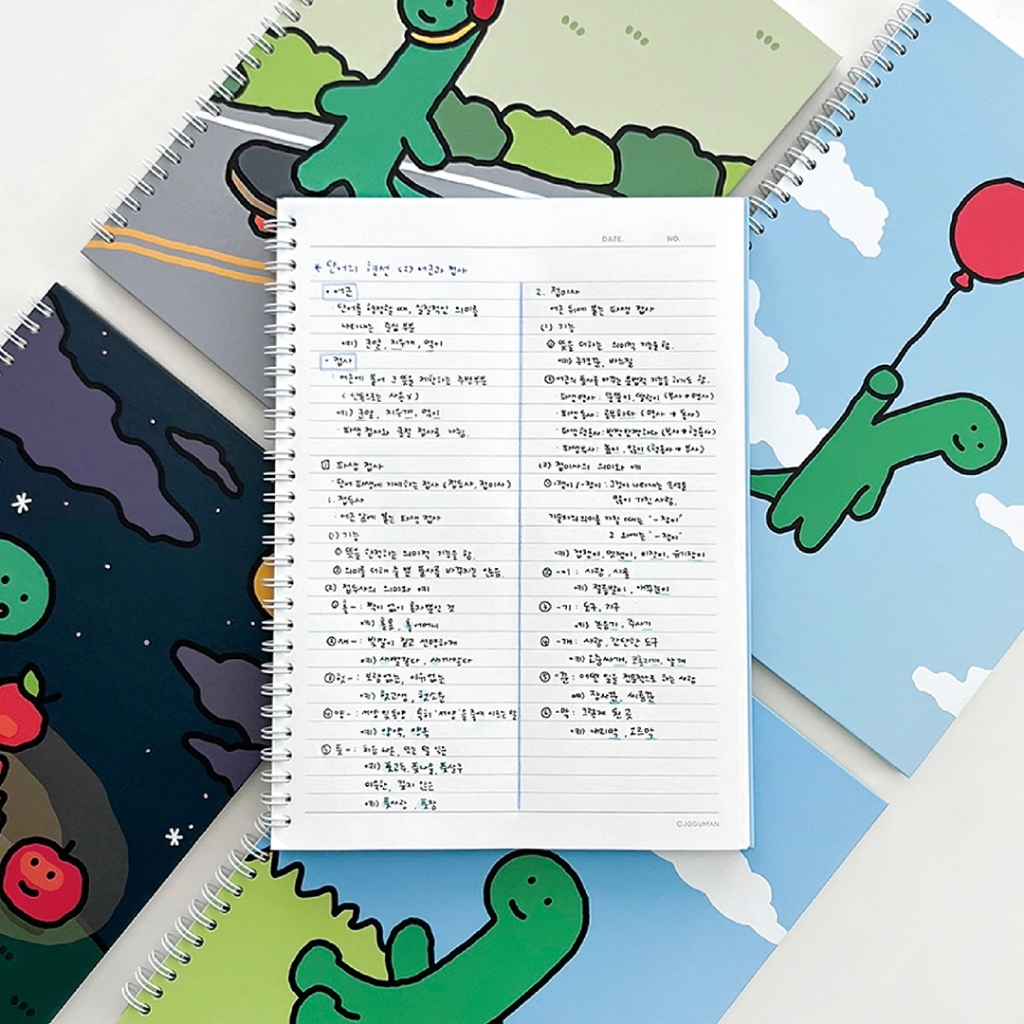 DATE. NO.
* 단어의 형성 (2) 어근과 접사
· 어근
· 단어를 형성할 때, 실질적인 의미를
나타내는 중심 부분
예) 군말, 지우개, 먹이
· 접사
· 어근에 붙어 그 뜻을 제한하는 주변부분
( 단독으로는 사용 x )
예) 군말, 지우개, 먹이
· 파생 접사와 굴절 접사로 나뉨.
1 파생 접사
· 단어 파생에 기여하는 접사 (접두사, 접미사)
1. 접두사
· 어근 앞에 붙는 파생 접사
(1) 기능
① 뜻을 한정하는 의미적 기능을 함.
② 의미를 더해 줄 뿐 품사를 바꾸지는 않음.
(2) 접두사의 의미와 예
① 홀- : 짝이 없이 혼자뿐인 것
예) 홀몸, 홀어머니
② 새- : 빛깔이 짙고 선명하게
예) 새빨갛다, 새까맣다
③ 헛- : 보람없는, 이유없는
예) 헛고생, 헛소문
④ 양- : 서양 및 동양. 특히 '서양'을 줄여 이르는 말
예) 양악, 양복
⑤ 풋- : 처음 나온, 또는 덜 익은
예) 풋고추, 풋나물, 풋살구
미숙한, 깊지 않은
예) 풋사랑, 풋잠
2. 접미사
· 어근 뒤에 붙는 파생 접사
(1) 기능
① 뜻을 더하는 의미적 기능을 함.
예) 구경꾼, 바느질
② 어근의 품사를 바꾸는 문법적 기능을 하기도 함.
· 파생명사 :
· 파생동사 : 공부하다 (명사 → 동사)
· 파생형용사 : 반짝반짝하다 (부사 → 형용사)
· 파생부사 : 높이, 많이 (형용사 → 부사)
(2) 접미사의 의미와 예
① -쟁이/-장이 : 그것이 나타내는 속성을
많이 가진 사람,
기술자의 의미를 가질 때는 '-장이'
그 외에는 '-쟁이'
예) 겁쟁이, 멋쟁이, 미장이, 유기장이
② -이 : 사람, 사물
예) 절름발이, 애꾸눈이
③ -기 : 도구, 기구
예) 녹음기, 주사기
④ -개 : 사람, 간단한 도구
예) 오줌싸개, 코흘리개, 날개
⑤ -꾼 : 어떤 일을 전문적으로 하는 사람
예) 장사꾼, 씨름꾼
⑥ -막 : 그렇게 된 곳
예) 내리막, 오르막
©JOGUMAN